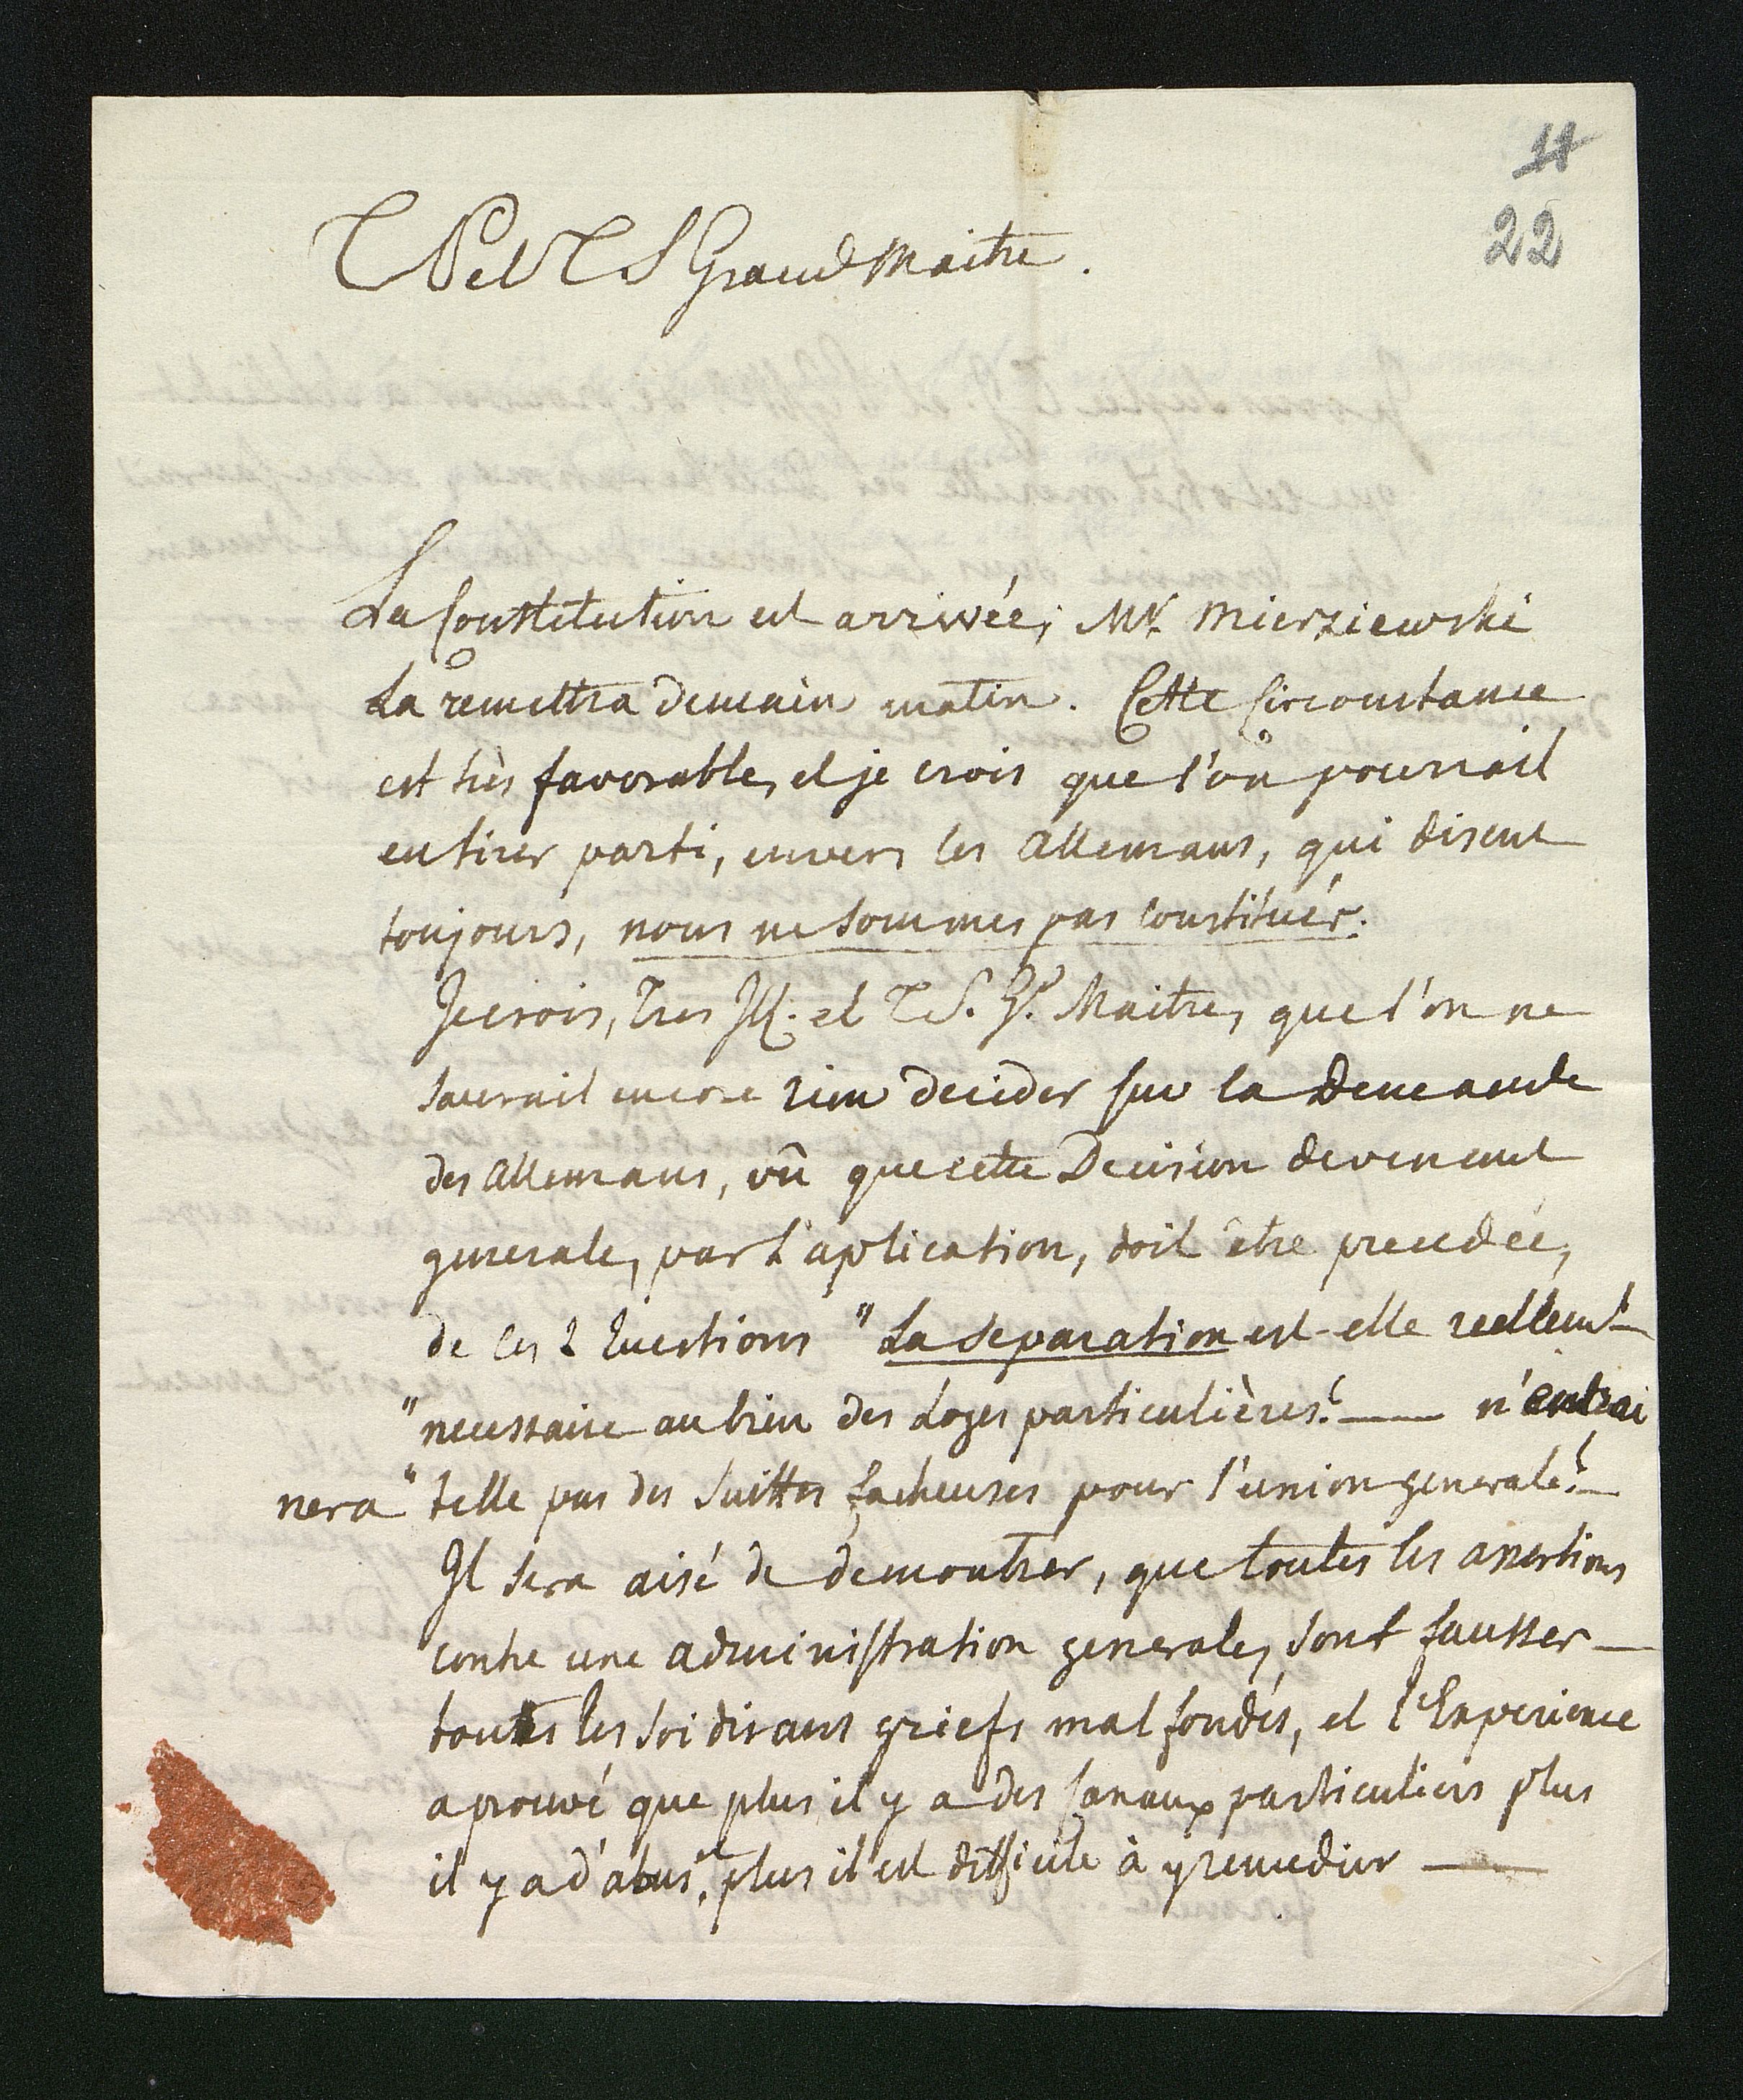 11
22
T R et T S Grand Maitre.
La Constitution est arrivée; Mr. Mierziewski
La remettra demain matin. Cette Circonstance
est très favorable, et je crois que l'on pourrait
en tirer parti, envers les Allemans, qui disent
toujours, nous ne sommes pas constitués.
Je crois, Tres Ill. et T S. Gd. Maitre, que l'on ne
saurait encore rien decider sur la Demande
des Allemans, vû que cette Decision devenant
generale, par l'aplication, doit être precedée,
de ces 2 Questions "La separation est-elle reellemt
"necessaire au bien des Loges particulières? — n'entrai
nera "telle pas des Suittes facheuses pour l'union generale? —
Il sera aisé de demontrer, que toutes les assertions
contre une administration generale, sont fausses —
toutes les soi disans griefs mal fondés, et l'Experience
a prouvé que plus il y a des Canaux particuliers plus
il y a d'abus, et plus il est difficile à y remedier —